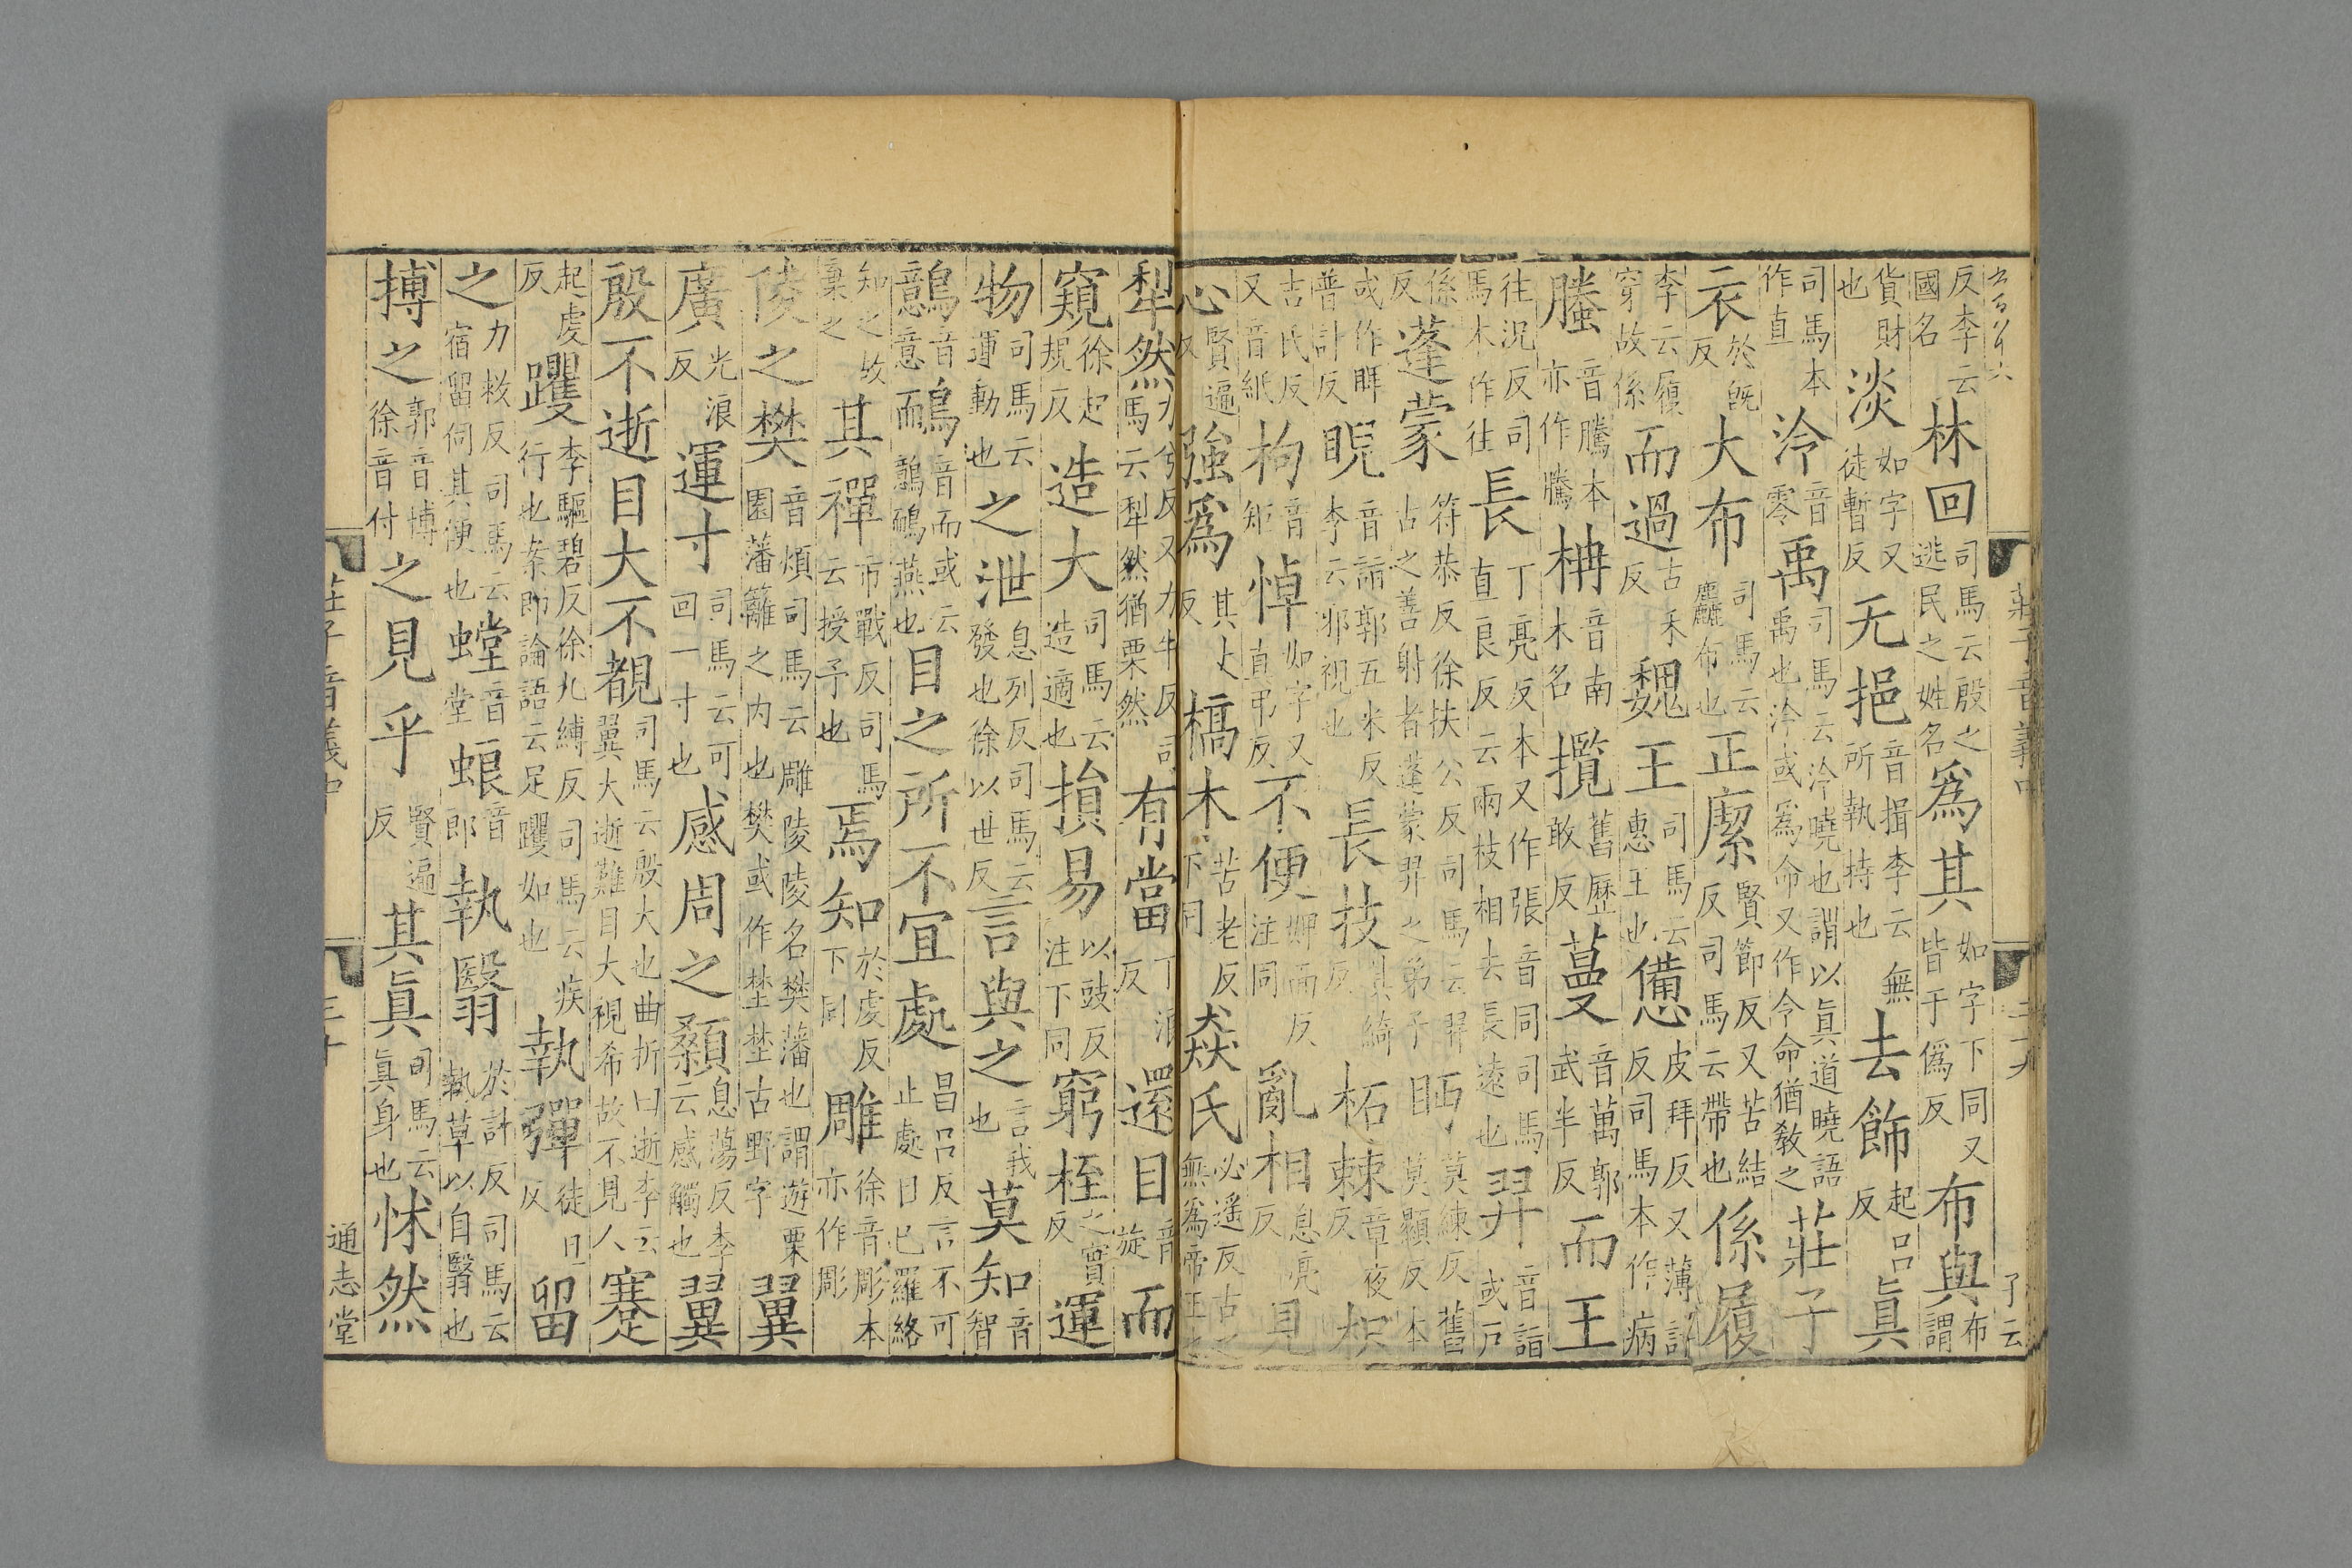 莊子音義中
反李云國名林回司馬云殷之逃民之姓名爲其如字下同又皆于僞反布與布謂
貨財也淡如字又徒暫反无挹音揖李云無所執持也去飾起呂反眞
司馬本作直泠音零禹司馬云泠曉也謂以眞道曉語禹也泠或爲命又作令命猶教之莊子
衣於旣反大布司馬云麤布也正緳賢節反又苦結反司馬云帶也係履
李云履穿故係而過古禾反魏王司馬云惠王也憊皮拜反又薄計反司馬本作病
螣音騰本亦作騰柟音南木名攬舊歷敢反蔓音萬郭武半反而王
往況反司馬本作往長丁亮反本又作張音同司馬直良反云兩枝相去長遠也羿音詣或戶
係反蓬蒙符恭反徐扶公反司馬云羿古之善射者蓬蒙羿之弟子眄莫練反舊莫顯反本
或作睥普計反睨音詣郭五米反李云邪視也長技其綺反柘棘章夜反枳
吉氏反又音紙枸音矩悼如字又直弔反不便婢面反注同亂相息亮反見
心賢遍反強爲其丈反槁木苦老反下同猋氏必遙反古之無爲帝王也
犁然力兮反又力牛反司馬云犁然猶栗然有當丁浪反還目音旋而
窺徐起規反造大司馬云造適也損易以豉反注下同窮桎之實反運
物司馬云運動也之泄息列反司馬云發也徐以世反言與之言我也莫知音智
鷾音意鴯音而或云鷾鴯燕也目之所不宜處昌呂反言不可止處目已羅絡
知之故棄之其禪市戰反司馬云授予也焉知於虔反下同雕徐音彫本亦作彫
陵之樊音煩司馬云雕陵陵名樊藩也謂遊栗園藩籬之内也樊或作埜埜古野字翼
廣光浪反運寸司馬云可回一寸也感周之顙息蕩反李云感觸也翼
殷不逝目大不覩司馬云殷大也曲折曰逝李云翼大逝難目大視希故不見人蹇
起虔反躩李驅碧反徐九縛反司馬云疾行也案即論語云足躩如也執彈徒旦反留
之力救反司馬云宿留伺其便也螳音堂蜋音郎執翳於計反司馬云執草以自翳也
搏之郭音博徐音付之見乎賢遍反其眞司馬云眞身也怵然
莊子音義中 三十 通志堂